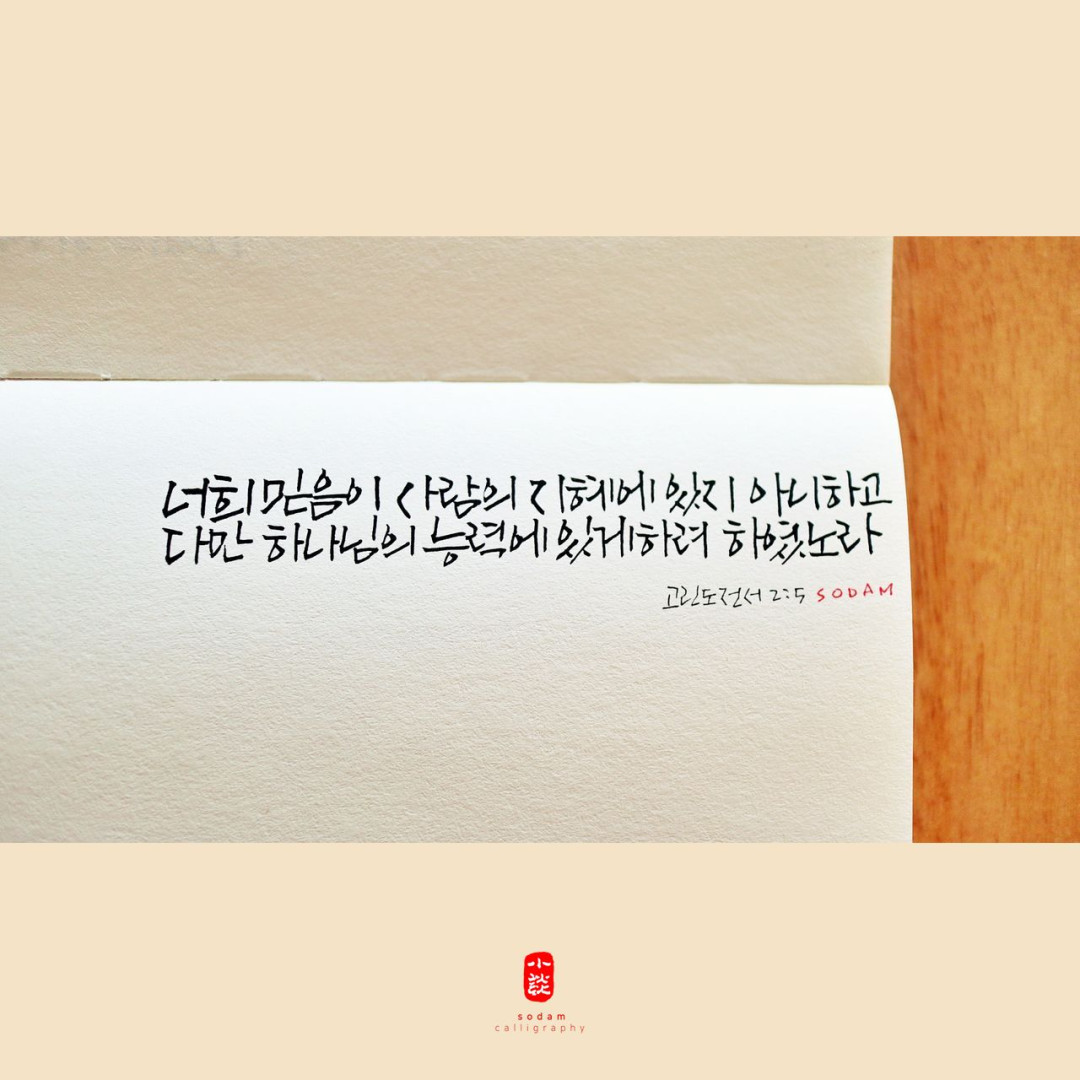 너희 믿음이 사람의 지혜에 있지 아니하고
다만 하나님의 능력에 있게 하려 하였노라
고린도전서 2:5 SODAM
小
談
sodam
calligraphy